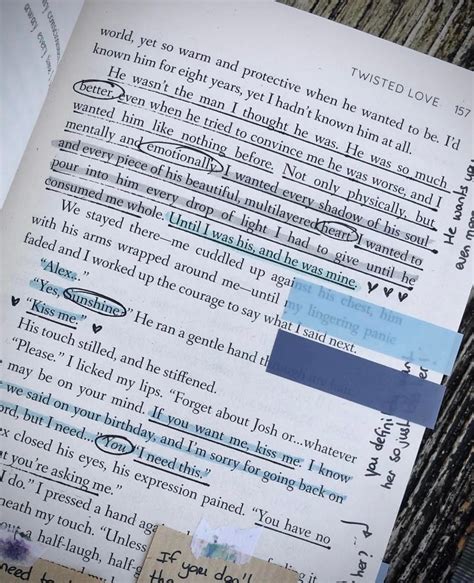 TWISTED LOVE 157
world, yet so warm and protective when he wanted to be. I'd
known him for eight years, yet I hadn't known him at all.
He wasn't the man I thought he was. He was so much
better, even when he tried to convince me he was worse, and I
wanted him like nothing before. Not only physically, but
mentally and emotionally. I wanted every shadow of his soul
and every piece of his beautiful, multilayered heart. I wanted to
pour into him every drop of light I had to give until he
consumed me whole. Until I was his, and he was mine.
We stayed there—me cuddled up against his chest, him
with his arms wrapped around me—until my lingering panic
faded and I worked up the courage to say what I said next.
"Alex..."
"Yes, sunshine." He ran a gentle hand
"Kiss me."
His touch stilled, and he stiffened.
"Please." I licked my lips. "Forget about Josh or...whatever
may be on your mind. If you want me, kiss me. I know
we said on your birthday, and I'm sorry for going back on
ord, but I need...You. I need this."
ex closed his eyes, his expression pained. "You have no
at you're asking me."
I do." I pressed a hand aga
neath my touch. "Unless
out a half-laugh, half-g
If you don't
the
He wants
even mor
you defini
her so just
her?
need to